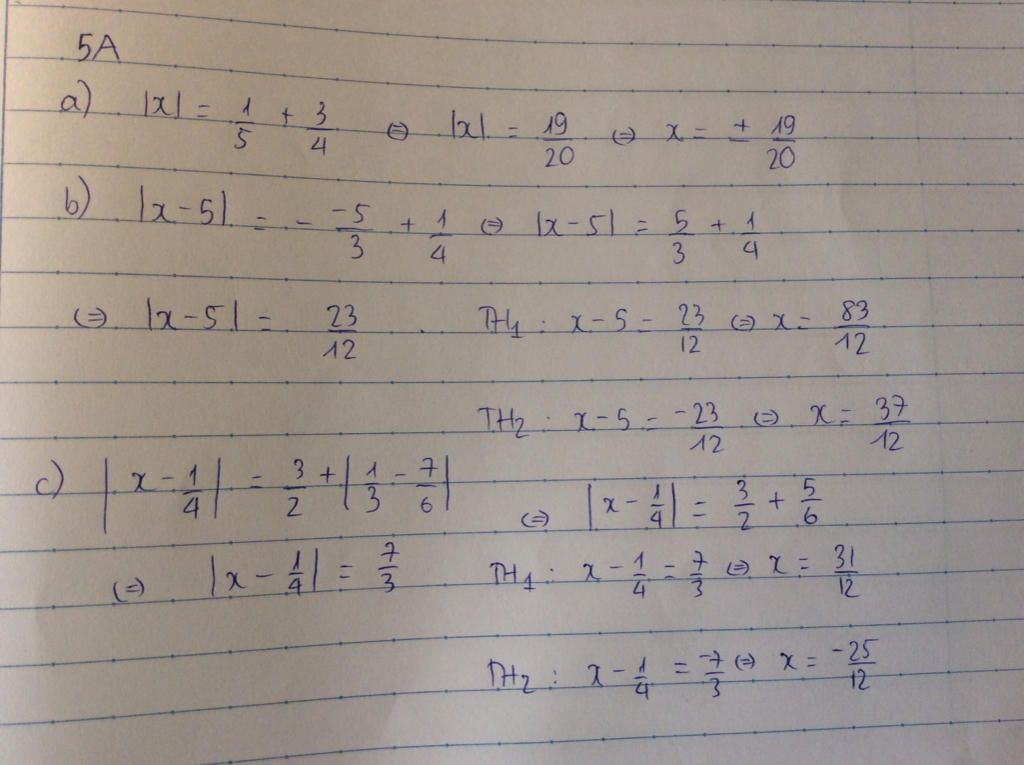 5A
a) |x| = 1/5 + 3/4 ⇔ |x| = 19/20 ⇔ x = ± 19/20
b) |x - 5| = - -5/3 + 1/4 ⇔ |x - 5| = 5/3 + 1/4
⇔ |x - 5| = 23/12 . TH1 : x - 5 = 23/12 ⇔ x = 83/12
TH2 : x - 5 = -23/12 ⇔ x = 37/12
c) |x - 1/4| = 3/2 + |1/3 - 7/6| ⇔ |x - 1/4| = 3/2 + 5/6
⇔ |x - 1/4| = 7/3 TH1 : x - 1/4 = 7/3 ⇔ x = 31/12
TH2 : x - 1/4 = -7/3 ⇔ x = -25/12